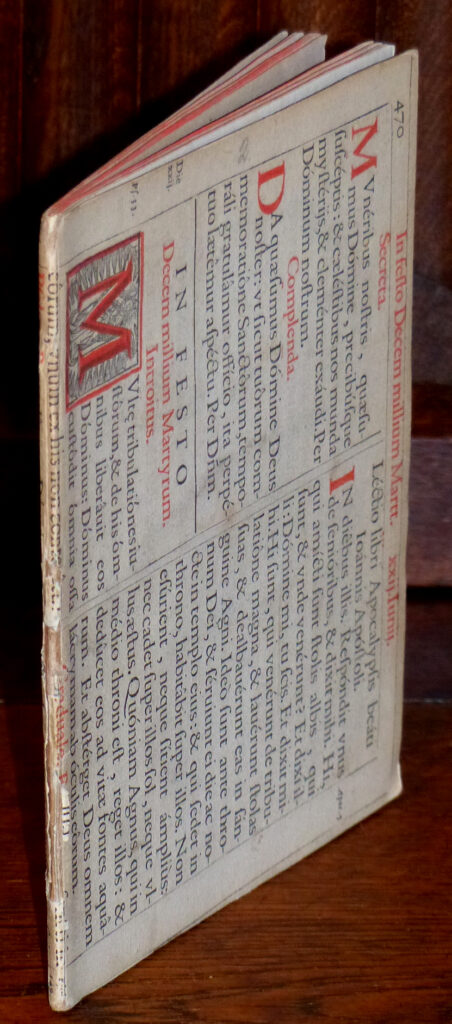 470
In feſto Decem millium Martt. xxij. Iunij.
Secreta.
MVnéribus noſtris, quæſu-
mus Dómine, precibúſque
ſuſcéptis: & cæléſtibus nos munda
myſtérijs, & cleménter exáudi. Per
Dóminum noſtrum.
Complenda.
DA quæſumus Dómine Deus
noſter: vt ſicut tuórum com-
memoratióne Sanctórum, tempo-
ráli gratulámur offício, ita perpé-
tuo aſpéctu. Per Dñm.
Die
xxij.
IN FESTO
Decem millium Martyrum.
Introitus.
Pſ. 33.
MVltæ tribulatiónes iu-
ſtórum, & de his óm-
nibus liberáuit eos
Dóminus: Dóminus
cuſtódit ómnia oſſa
Léctio libri Apocalypſis beáti
Ioánnis Apóſtoli.
Apo. 7
IN diébus illis, Reſpóndit vnus
de ſenióribus, & dixit mihi, Hi,
qui amícti ſunt ſtolis albis, qui
ſunt, & vnde venérunt? Et dixi il-
li: Dómine mi, tu ſcis. Et dixit mi-
hi: Hi ſunt, qui venérunt de tribu-
latióne magna, & lauérunt ſtolas
ſuas, & dealbauérunt eas in ſán-
guine Agni. Ideo ſunt ante thro-
num Dei, & ſéruiunt ei die ac no-
cte in templo eius: & qui ſedet in
throno, habitábit ſuper illos. Non
eſúrient, neque ſítient ámplius:
nec cadet ſuper illos ſol, neque vl-
lus æſtus. Quóniam Agnus, qui in
médio throni eſt, reget illos: &
dedúcet eos ad vitæ fontes aquá-
rum. Et abſtérget Deus omnem
lácrymam ab óculis eórum.